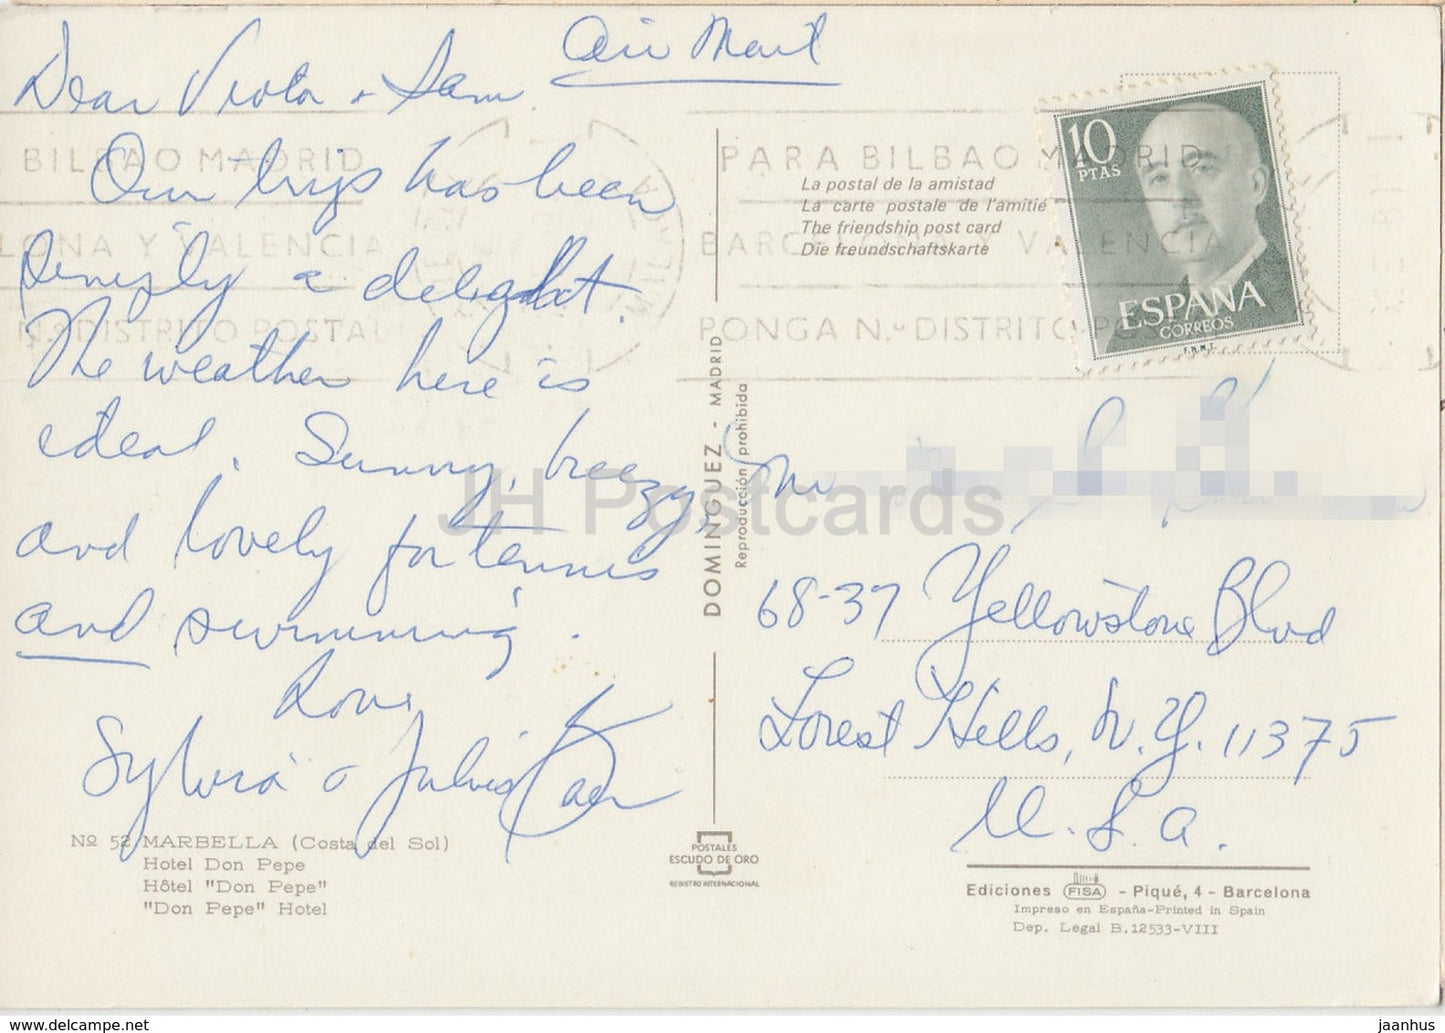 Air Mail
Dear Viola + Sam
Our trip has been
simply a delight.
The weather here is
ideal. Sunny, breezy,
and lovely for tennis
and swimming.
Love
Sylvia + Julius
Nº 52 MARBELLA (Costa del Sol)
Hotel Don Pepe
Hôtel "Don Pepe"
"Don Pepe" Hotel
BILBAO MADRID
LONA Y VALENCIA
N.º DISTRITO POSTAL
DOMINGUEZ - MADRID
Reproducción prohibida
POSTALES
ESCUDO DE ORO
REGISTRO INTERNACIONAL
PARA BILBAO MADRID
BARCELONA Y VALENCIA
PONGA N.º DISTRITO POSTAL
La postal de la amistad
La carte postale de l'amitié
The friendship post card
Die freundschaftskarte
10
PTAS
ESPAÑA
CORREOS
F.N.M.T.
68-37 Yellowstone Blvd
Forest Hills, N.Y. 11375
U.S.A.
Ediciones FISA - Piqué, 4 - Barcelona
Impreso en España-Printed in Spain
Dep. Legal B. 12533-VIII
JH Postcards
delcampe.net
jaanhus